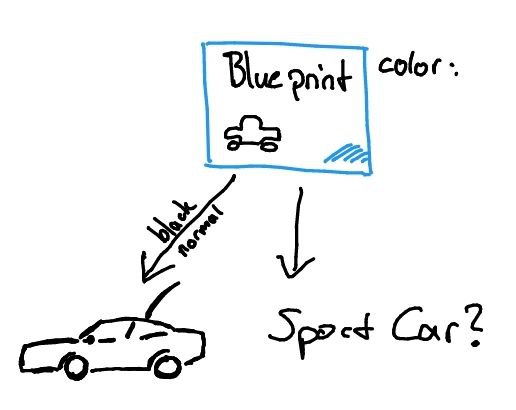 Blueprint
color:
black
normal
Sport Car?